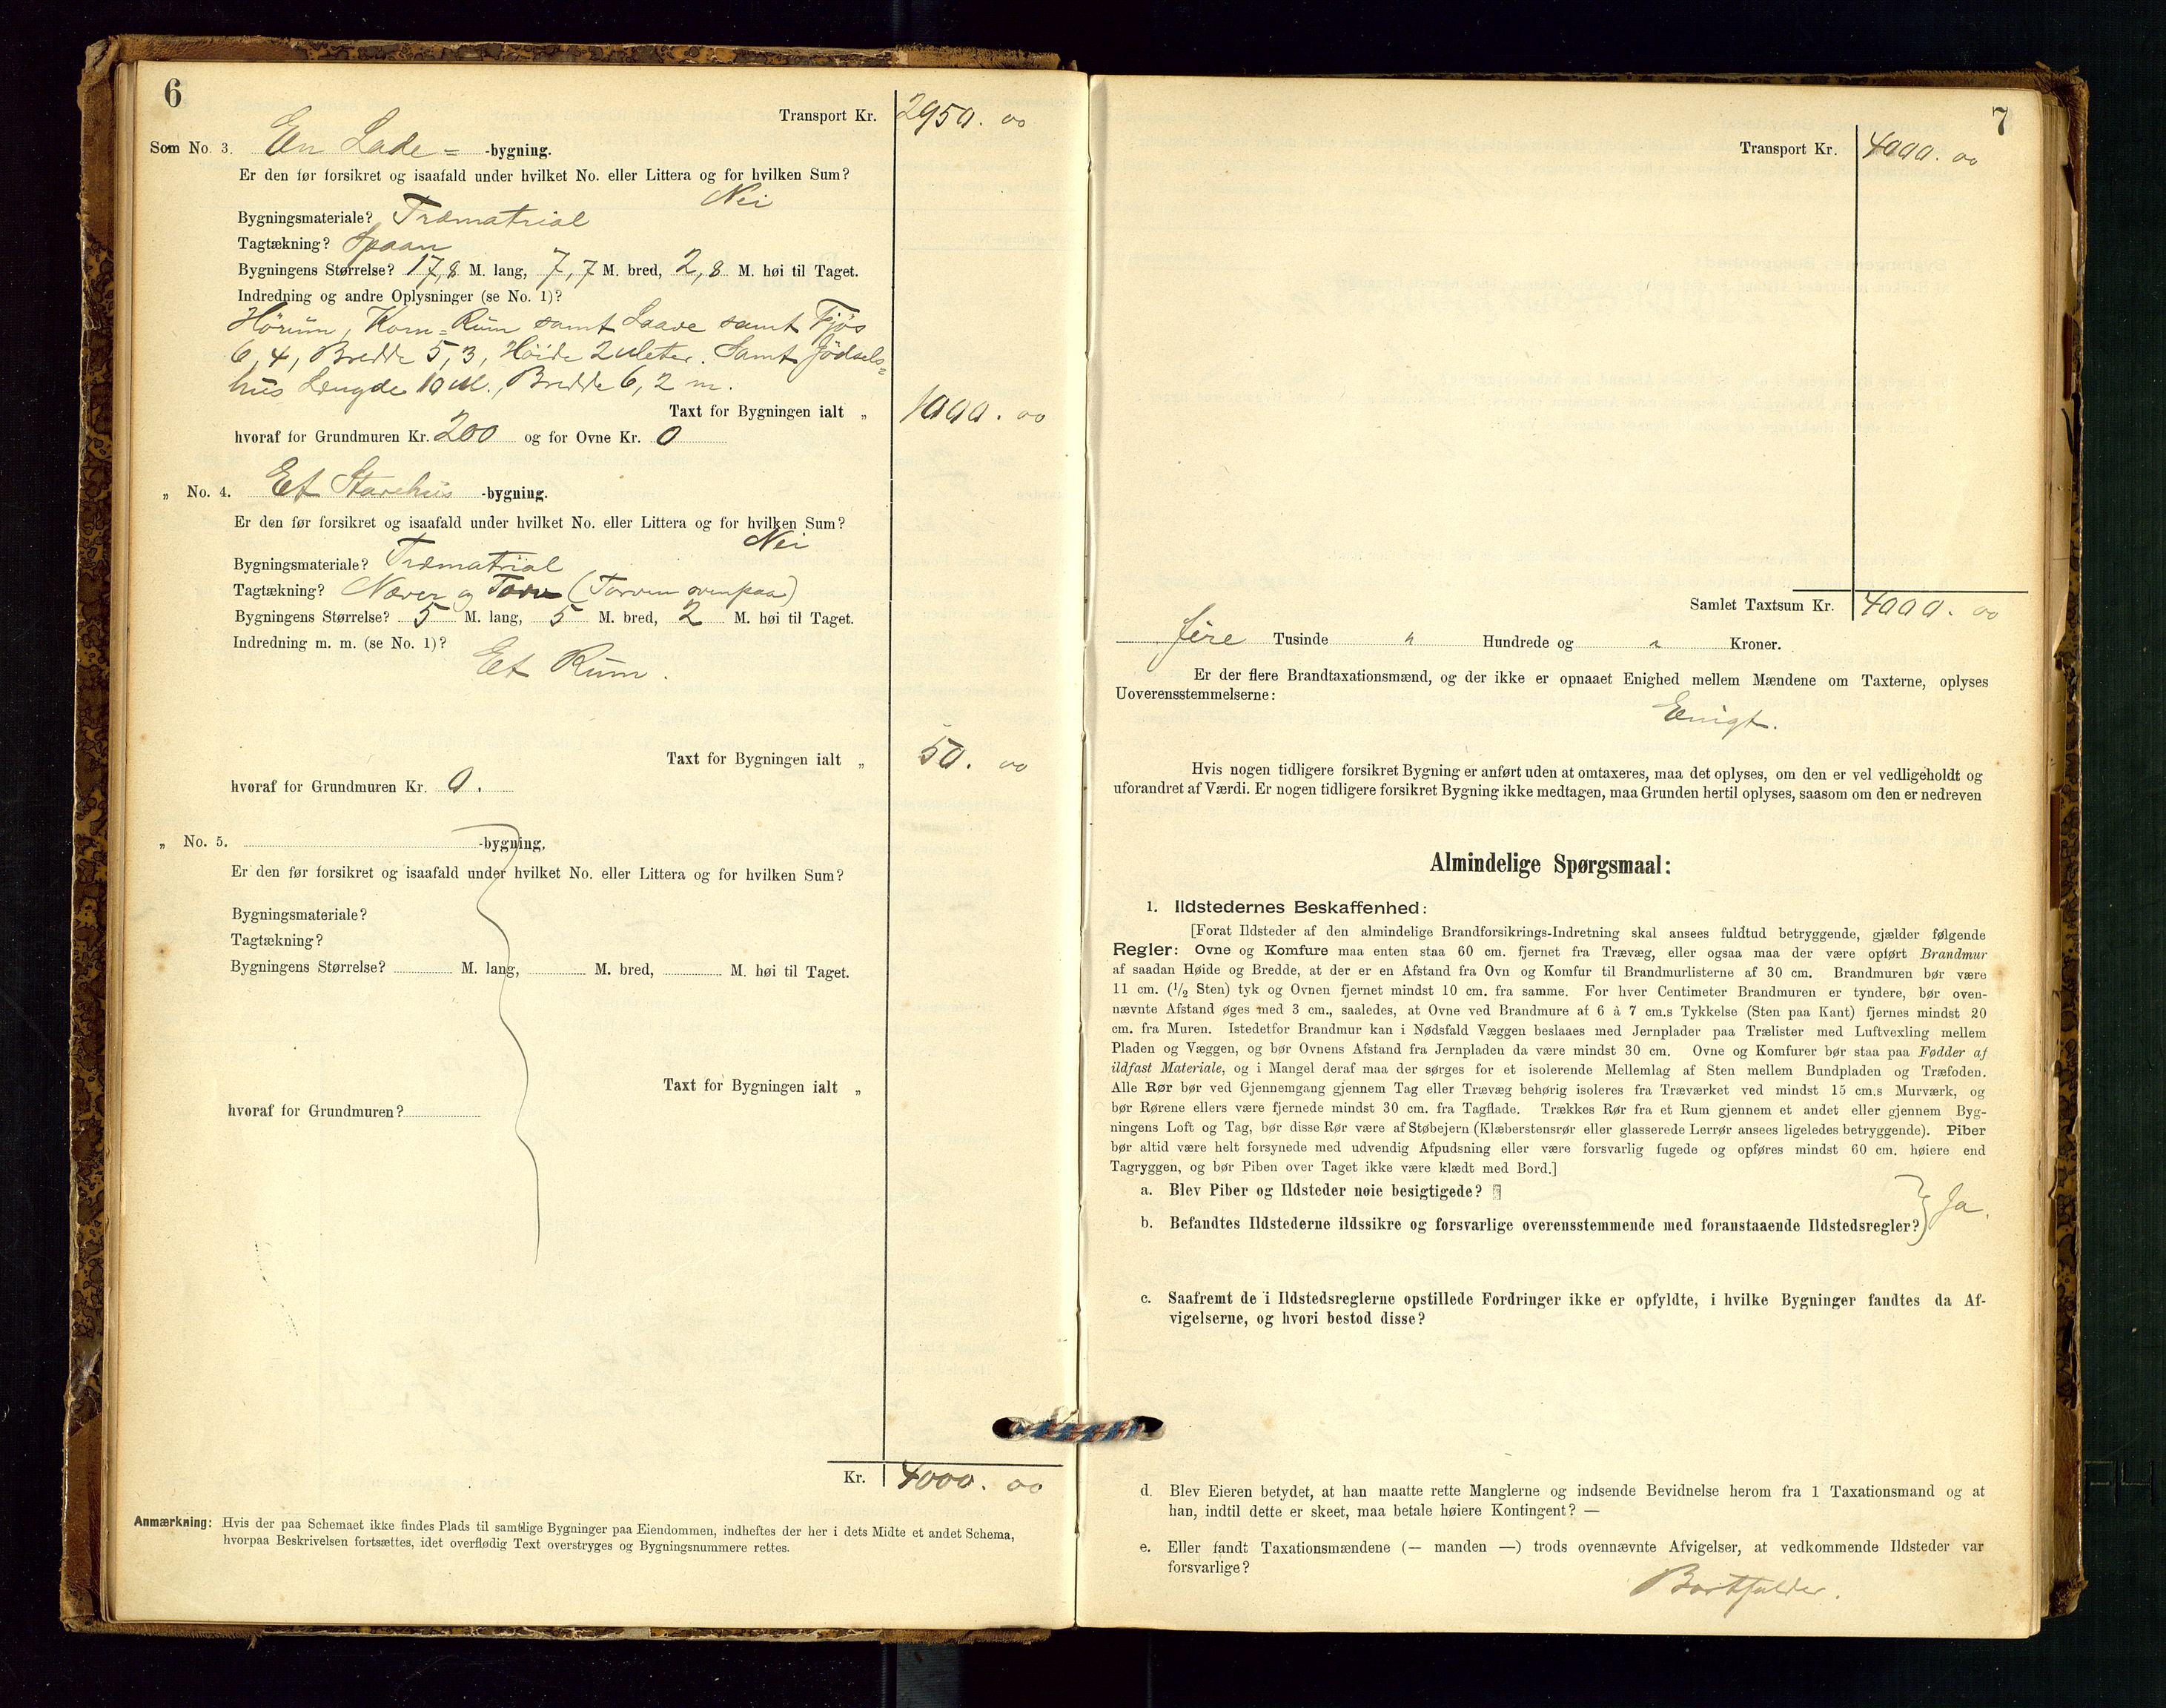 6
Transport Kr. 2950. 00
Som No. 3. En Lade= -bygning.
Er den før forsikret og isaafald under hvilket No. eller Littera og for hvilken Sum?
Nei
Bygningsmateriale? Træmatrial
Tagtækning? Spaan
Bygningens Størrelse? 17,8 M. lang, 7,7 M. bred, 2,8 M. høi til Taget.
Indredning og andre Oplysninger (se No. 1)?
Hörüm, Korn=Rüm samt Laave samt Fjøs
6,4, Bredde 5,3, Höide 2 Meter. Samt Gödsels=
hüs Længde 10 M., Bredde 6,2 m.
Taxt for Bygningen ialt „ 1000. 00
hvoraf for Grundmuren Kr. 200 og for Ovne Kr. 0
„ No. 4. Et Starehüs -bygning.
Er den før forsikret og isaafald under hvilket No. eller Littera og for hvilken Sum?
Nei
Bygningsmateriale? Træmatrial
Tagtækning? Næver og Torv (Torven ovenpaa)
Bygningens Størrelse? 5 M. lang, 5 M. bred, 2 M. høi til Taget.
Indredning m. m. (se No. 1)?
Et Rüm.
Taxt for Bygningen ialt „ 50. 00
hvoraf for Grundmuren Kr. 0.
„ No. 5. -bygning.
Er den før forsikret og isaafald under hvilket No. eller Littera og for hvilken Sum?
Bygningsmateriale?
Tagtækning?
Bygningens Størrelse? M. lang, M. bred, M. høi til Taget.
Taxt for Bygningen ialt „
hvoraf for Grundmuren?
Kr. 4000. 00
Anmærkning: Hvis der paa Schemaet ikke findes Plads til samtlige Bygninger paa Eiendommen, indheftes der her i dets Midte et andet Schema,
hvorpaa Beskrivelsen fortsættes, idet overflødig Text overstryges og Bygningsnummere rettes.
7
Transport Kr. 4000. 00
Samlet Taxtsum Kr. 4000. 00
Fire Tusinde " Hundrede og " Kroner.
Er der flere Brandtaxationsmænd, og der ikke er opnaaet Enighed mellem Mændene om Taxterne, oplyses
Uoverensstemmelserne:
Enigt.
Hvis nogen tidligere forsikret Bygning er anført uden at omtaxeres, maa det oplyses, om den er vel vedligeholdt og
uforandret af Værdi. Er nogen tidligere forsikret Bygning ikke medtagen, maa Grunden hertil oplyses, saasom om den er nedreven
Almindelige Spørgsmaal:
1. Ildstedernes Beskaffenhed:
[Forat Ildsteder af den almindelige Brandforsikrings-Indretning skal ansees fuldtud betryggende, gjælder følgende
Regler: Ovne og Komfure maa enten staa 60 cm. fjernet fra Trævæg, eller ogsaa maa der være opført Brandmur
af saadan Høide og Bredde, at der er en Afstand fra Ovn og Komfur til Brandmurlisterne af 30 cm. Brandmuren bør være
11 cm. (1/2 Sten) tyk og Ovnen fjernet mindst 10 cm. fra samme. For hver Centimeter Brandmuren er tyndere, bør oven-
nævnte Afstand øges med 3 cm., saaledes, at Ovne ved Brandmure af 6 à 7 cm.s Tykkelse (Sten paa Kant) fjernes mindst 20
cm. fra Muren. Istedetfor Brandmur kan i Nødsfald Væggen beslaaes med Jernplader paa Trælister med Luftvexling mellem
Pladen og Væggen, og bør Ovnens Afstand fra Jernpladen da være mindst 30 cm. Ovne og Komfurer bør staa paa Fødder af
ildfast Materiale, og i Mangel deraf maa der sørges for et isolerende Mellemlag af Sten mellem Bundpladen og Træfoden.
Alle Rør bør ved Gjennemgang gjennem Tag eller Trævæg behørig isoleres fra Træværket ved mindst 15 cm.s Murværk, og
bør Rørene ellers være fjernede mindst 30 cm. fra Tagflade. Trækkes Rør fra et Rum gjennem et andet eller gjennem Byg-
ningens Loft og Tag, bør disse Rør være af Støbejern (Klæberstensrør eller glasserede Lerrør ansees ligeledes betryggende). Piber
bør altid være helt forsynede med udvendig Afpudsning eller være forsvarlig fugede og opføres mindst 60 cm. høiere end
Tagryggen, og bør Piben over Taget ikke være klædt med Bord.]
a. Blev Piber og Ildsteder nøie besigtigede?
Ja.
b. Befandtes Ildstederne ildssikre og forsvarlige overensstemmende med foranstaaende Ildstedsregler?
c. Saafremt de i Ildstedsreglerne opstillede Fordringer ikke er opfyldte, i hvilke Bygninger fandtes da Af-
vigelserne, og hvori bestod disse?
d. Blev Eieren betydet, at han maatte rette Manglerne og indsende Bevidnelse herom fra 1 Taxationsmand og at
han, indtil dette er skeet, maa betale høiere Kontingent? —
e. Eller fandt Taxationsmændene (— manden —) trods ovennævnte Afvigelser, at vedkommende Ildsteder var
forsvarlige?
Bortfalder.